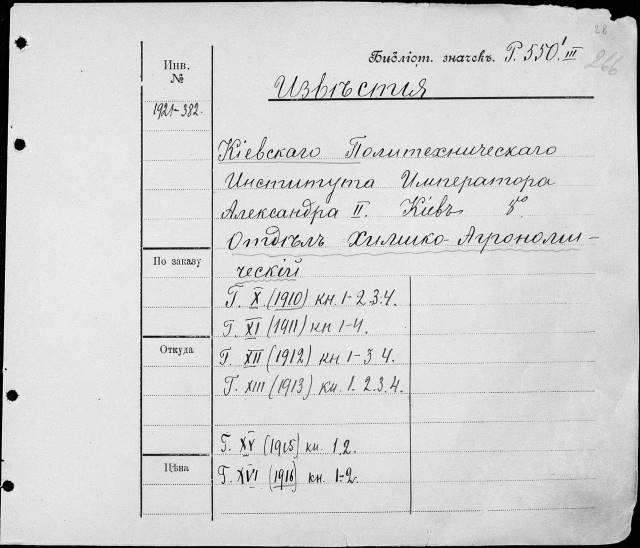 28
266
Библіот. значекъ. Р. 550.' III
Инв.
№
Извѣстия
1921-382.
Кіевскаго Политехническаго
Института Императора
Александра II. Кіевъ 8º
Отдѣлъ Химико-Агрономи-
ческій
По заказу
Г. X (1910) кн. 1-2.3.4.
Г. XI (1911) кн 1-4.
Откуда
Г. XII (1912) кн 1-3 4.
Г. XIII (1913) кн. 1. 2.3.4.
Г. XV (1915) кн. 1.2.
Цѣна
Г. XVI (1916) кн. 1-2.